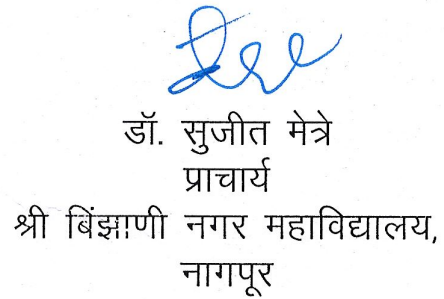 डॉ. सुजीत मेत्रे
प्राचार्य
श्री बिंझाणी नगर महाविद्यालय,
नागपूर